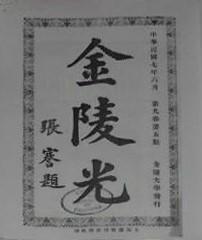 中華民國七年六月　第九卷第五期
金陵大學發行
金陵光
張謇題